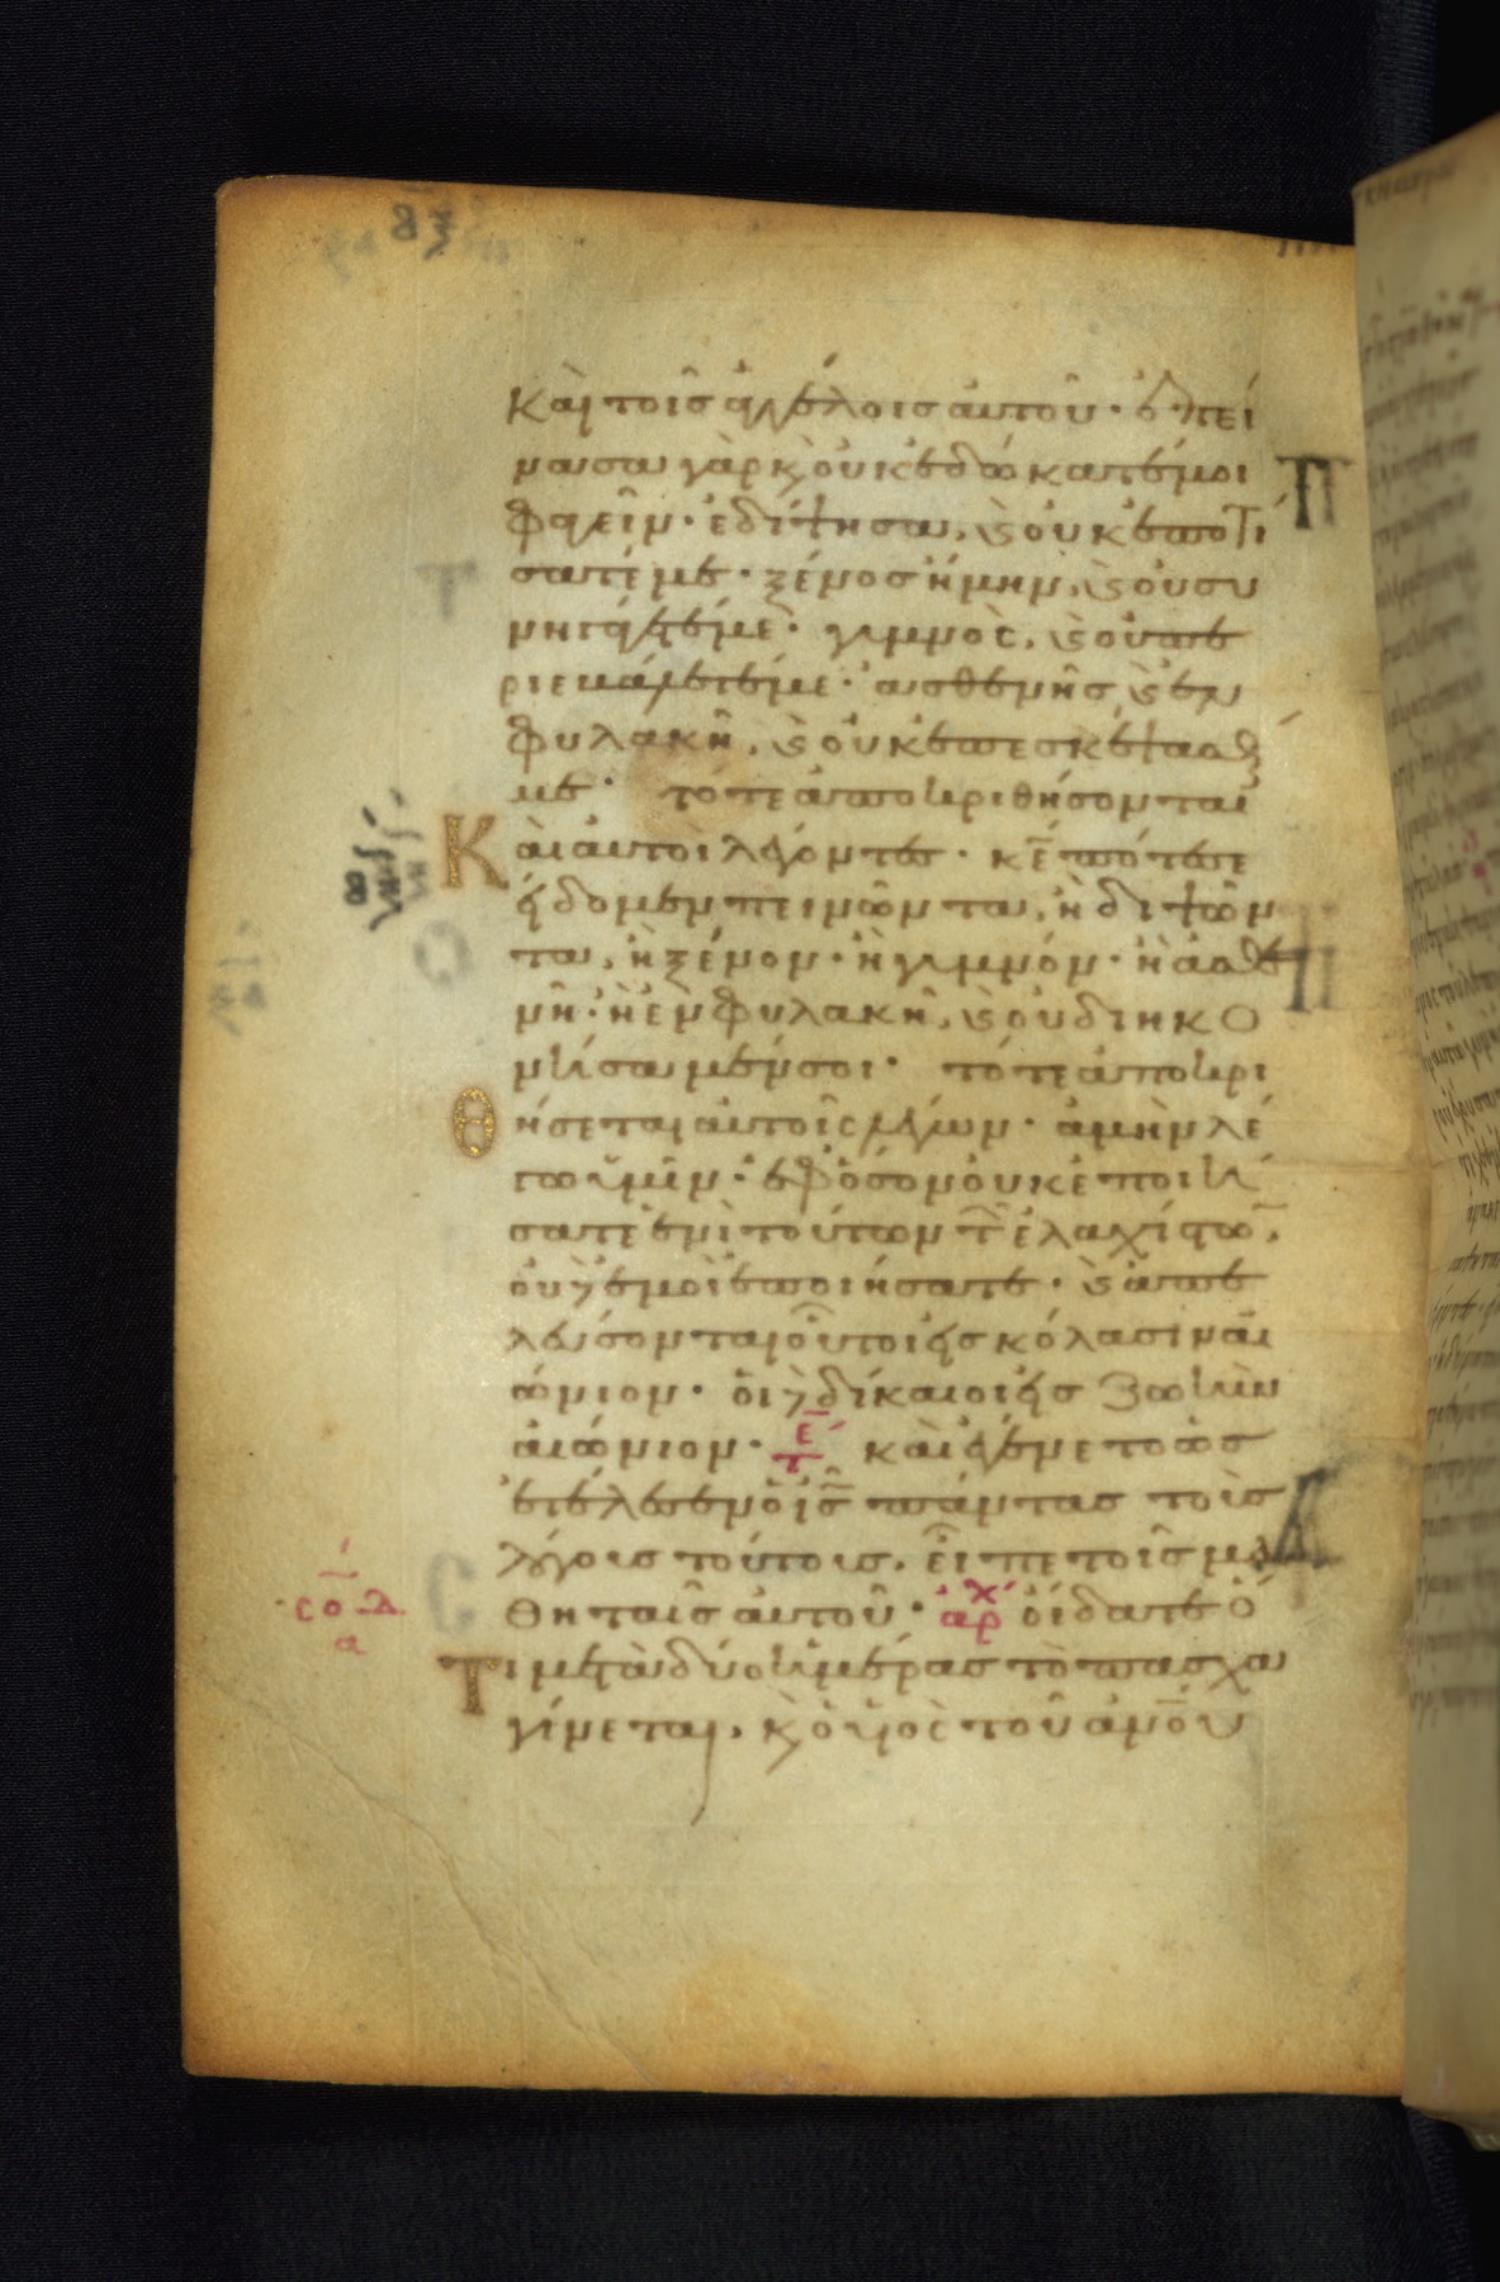 Καὶ τοῖς ἀγγέλοις αὐτοῦ· ἐπεί
νασα γὰρ κ οὐκ ἐδώκατέ μοι
φαγεῖν· ἐδίψησα, κ οὐκ ἐποτί
σατέ με· ξένος ἤμην, κ οὐ συ
νηγάγετέ με· γυμνὸς, κ οὐ πε
ριεβάλετέ με· ἀσθενὴς κ ἐν
φυλακῆ, κ οὐκ ἐπεσκέψασθέ
με· τότε ἀποκριθήσονται
Καὶ αὐτοὶ λέγοντες· κε πότε σε
εἴδομεν πεινῶντα, ἢ διψῶν
τα, ἢ ξένον· ἢ γυμνόν· ἢ ἀσθε
νῆ· ἢ ἐν φυλακῆ, κ οὐ διηκο
νήσαμέν σοι· τότε ἀποκρι
Θήσεται αὐτοῖς λέγων· ἀμὴν λέ
γω ὑμῖν· ἐφ ὅσον οὐκ ἐποιή
σατε ἑνὶ τούτων τ ἐλαχίστω,
οὐδὲ ἐμοὶ ἐποιήσατε· κ ἀπε
λεύσονται οὗτοι εἰς κόλασιν αἰ
ώνιον· οἱ δὲ δίκαιοι εἰς ζωὴν
αἰώνιον· τε καὶ ἐγένετο ὅτε
ἐτέλεσεν ὁ ις πάντας τοὺς
λόγους τούτους, εἶπε τοῖς μα
θηταῖς αὐτοῦ· αρχ οἴδατε ὅ
Τι μετὰ δύο ἡμέρας τὸ πασχα
γίνεται, κ ὁ υἱὸς τοῦ ανου